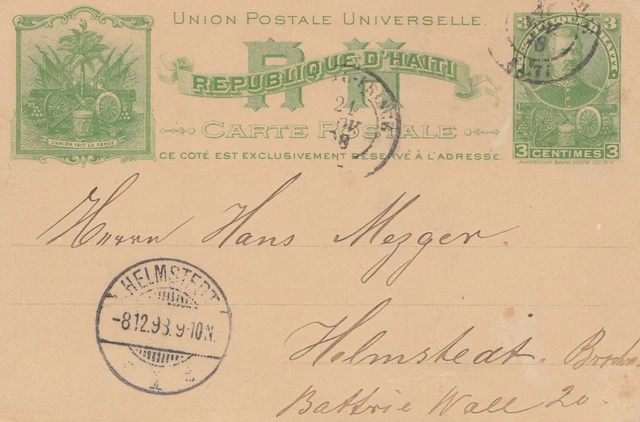 UNION POSTALE UNIVERSELLE.
RH
REPUBLIQUE D'HAITI
CARTE POSTALE
CE COTÉ EST EXCLUSIVEMENT RÉSERVÉ À L'ADRESSE.
L'UNION FAIT LA FORCE
REPUBLIQUE D'HAITI
3 CENTIMES 3
24
Herrn Hans Mezger.
HELMSTEDT
-8.12.98.9-10N.
Helmstedt.
Battrie Wall 20.